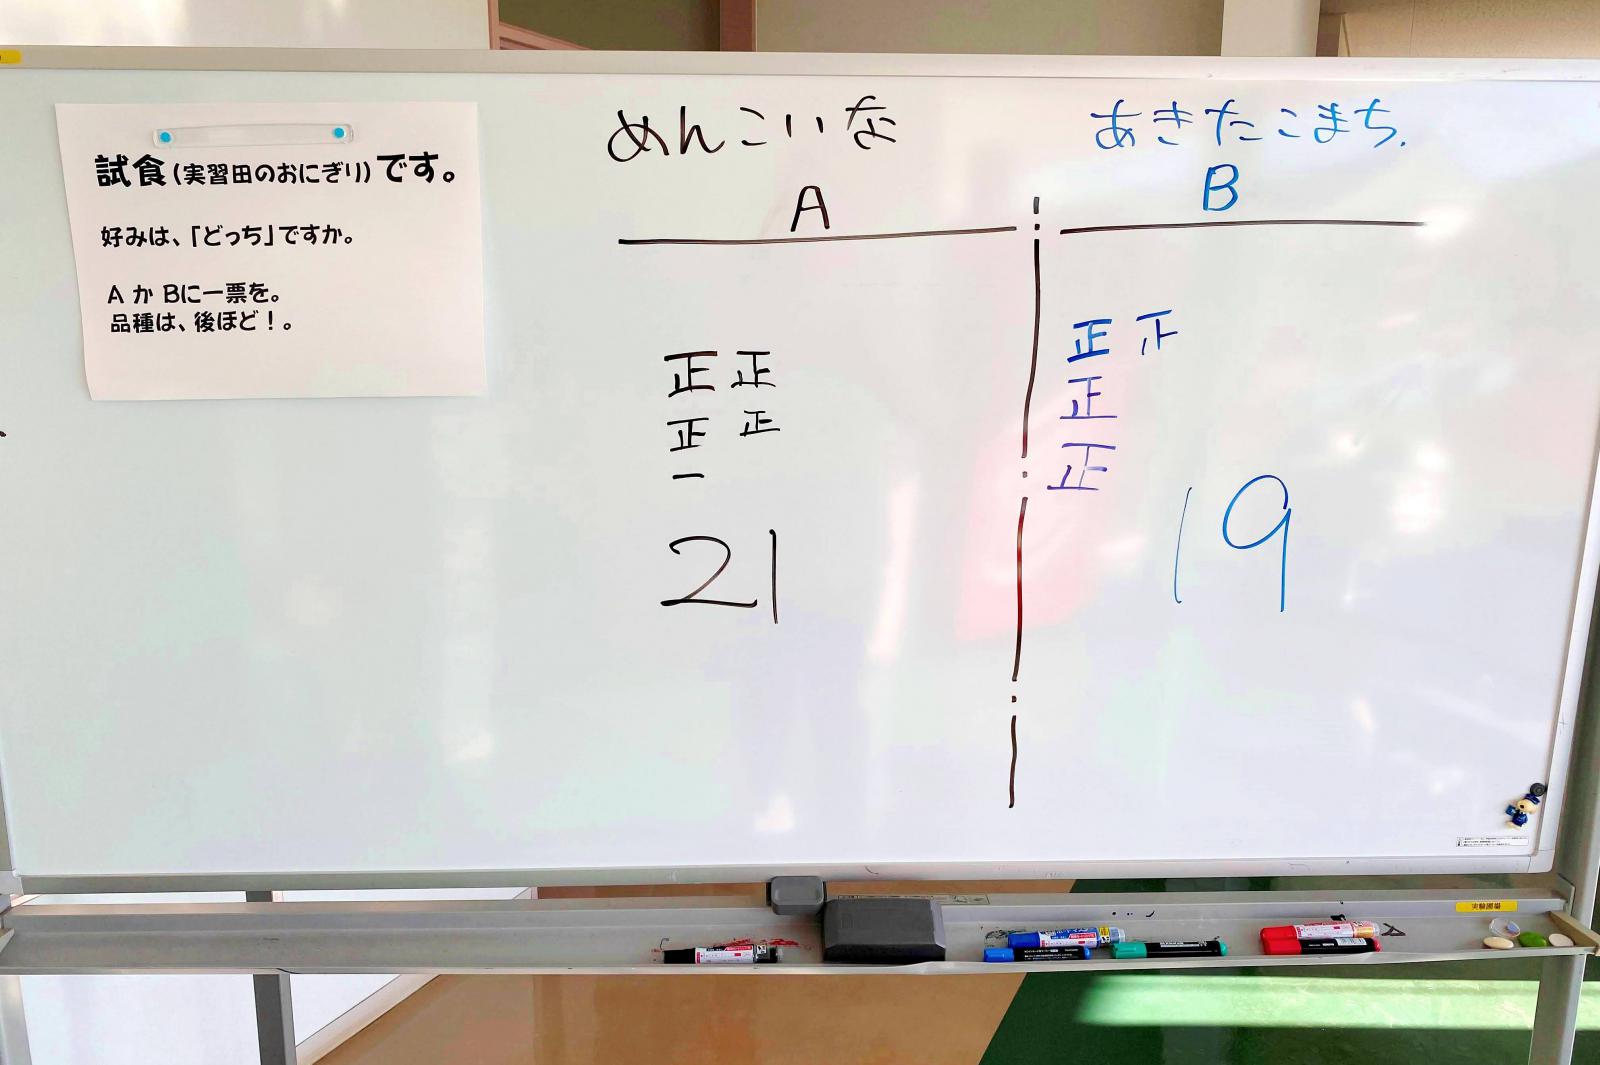 試食(実習田のおにぎり)です。
好みは、「どっち」ですか。
A か Bに一票を。
品種は、後ほど！。
めんこいな
A
正 正
正 正
一
21
あきたこまち.
B
正 下
正
正
19